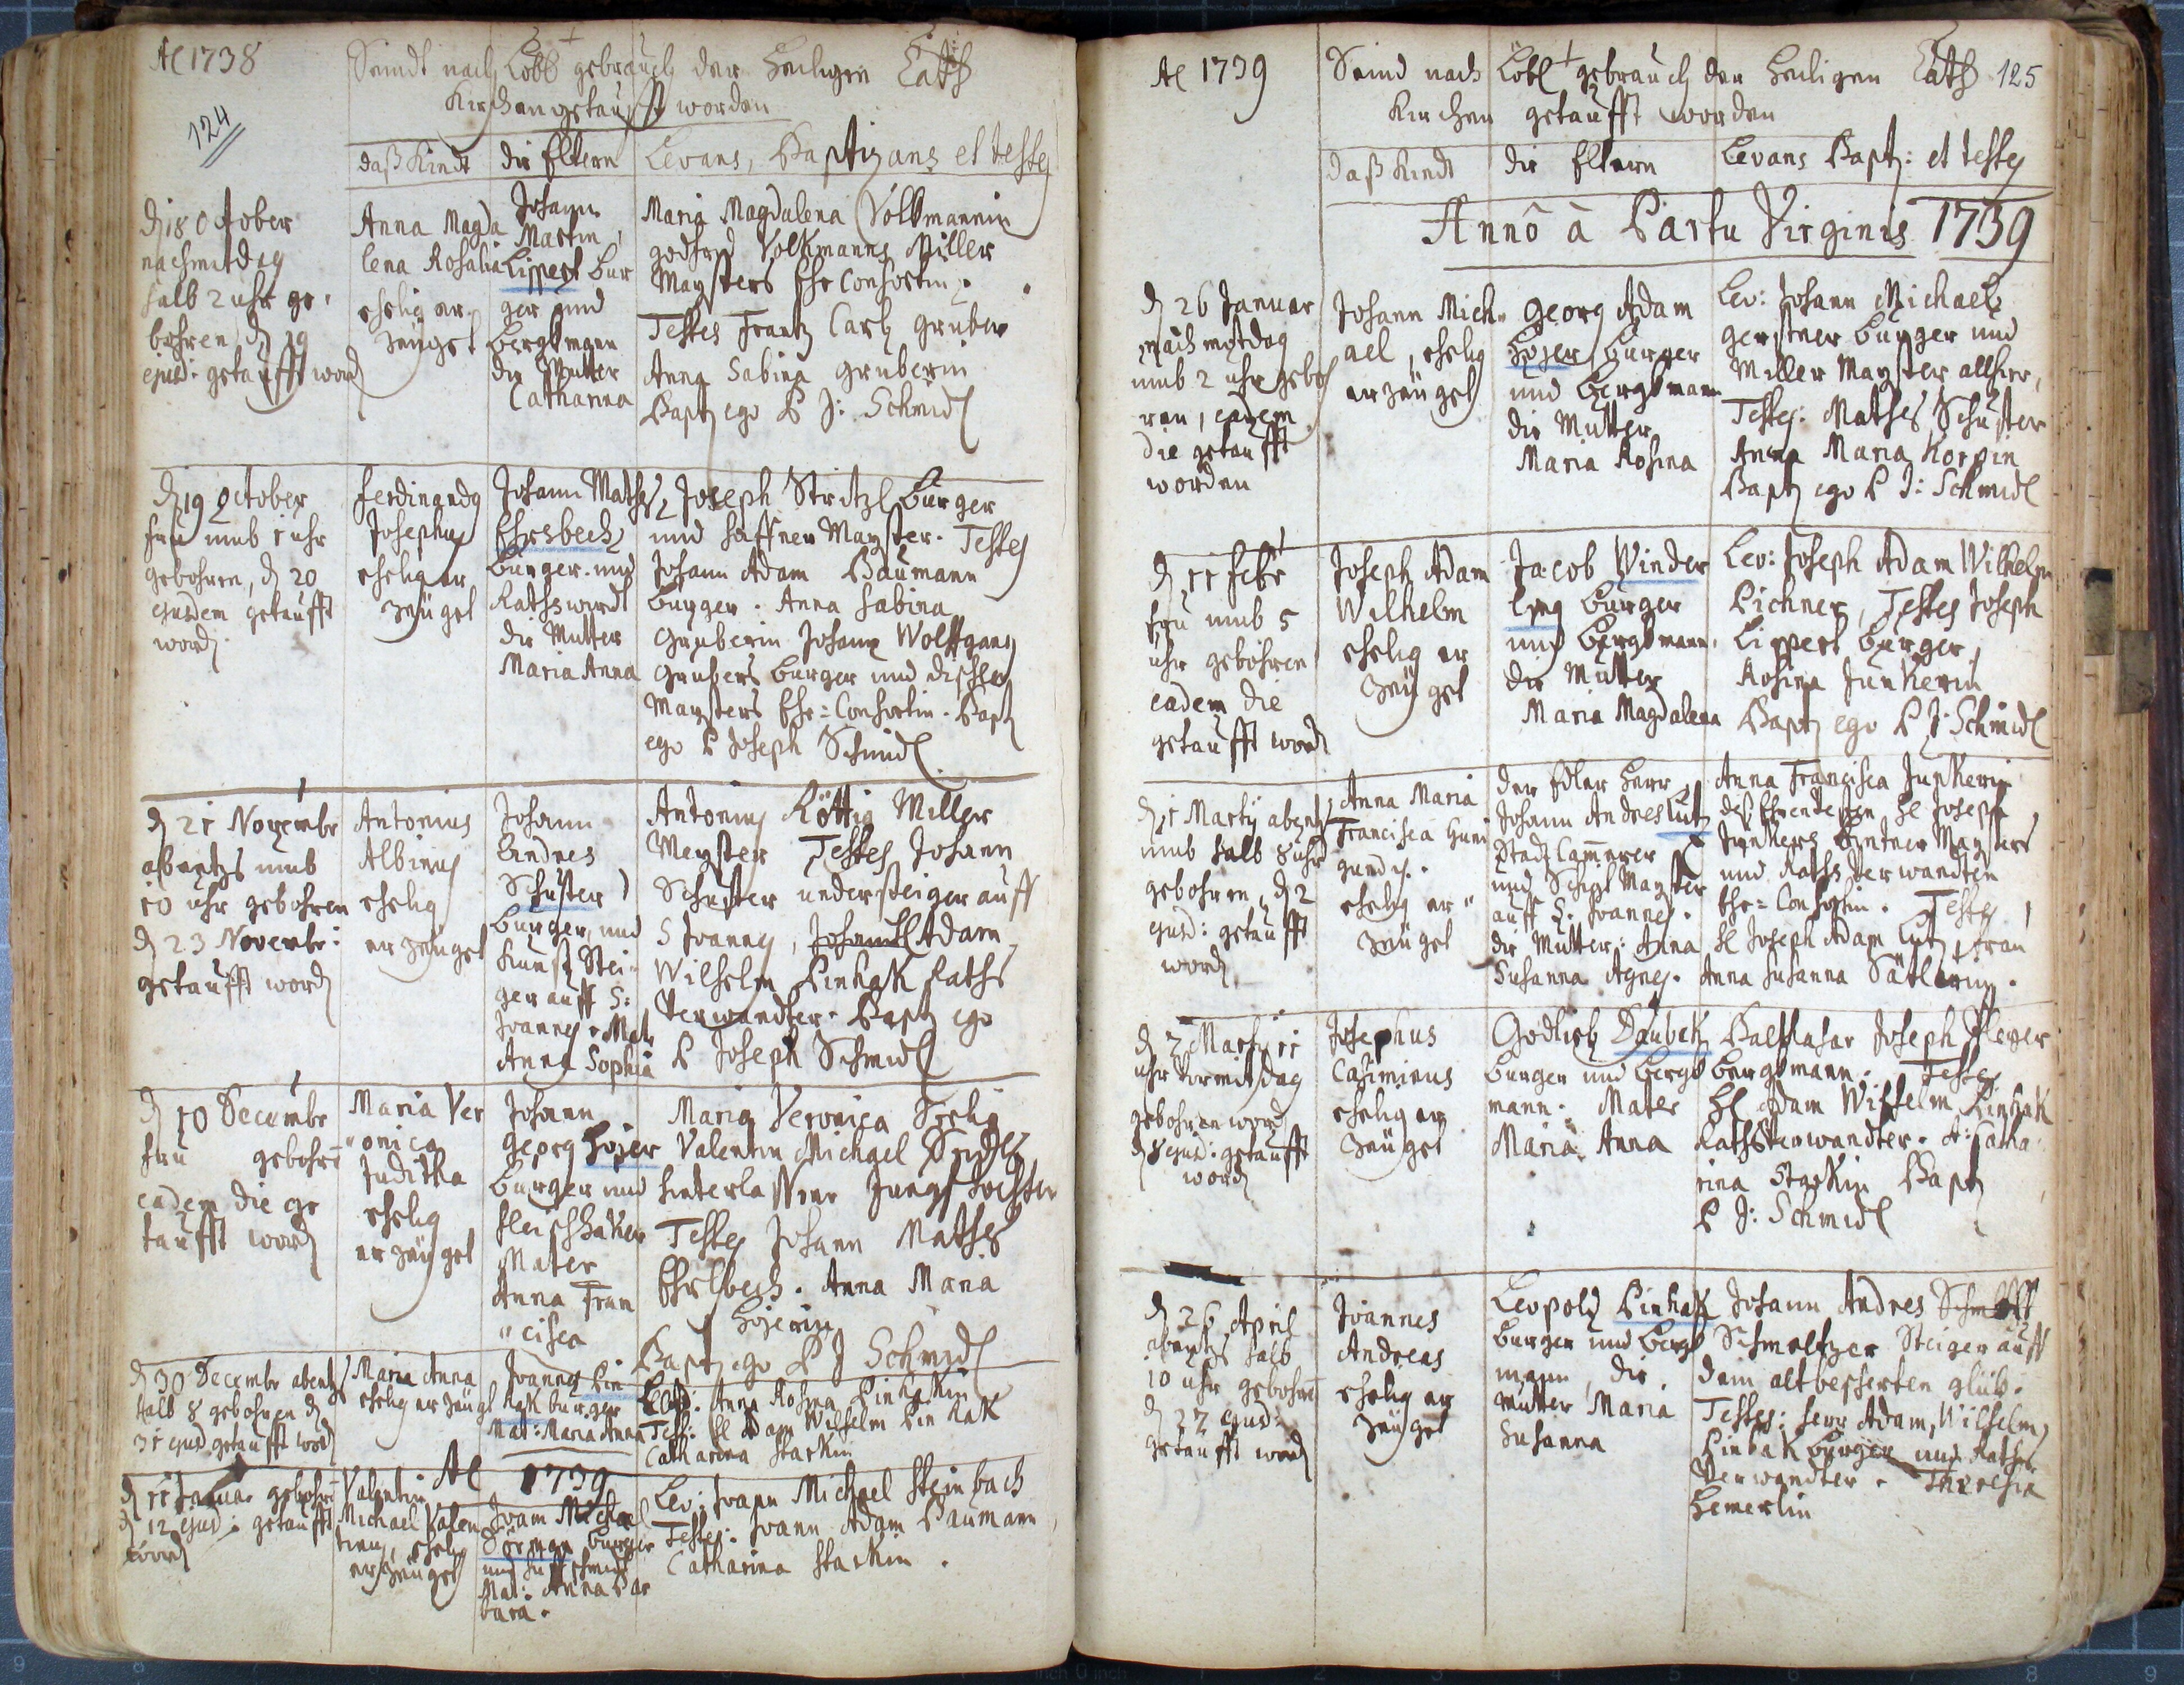 Ao 1738
Seindt nach Löbl gebrauch der Heiligen Cath
Kirchen getaufft worden
124
daß Kindt
die Eltern
Levans, Baptizans et testes
d 18 October
nachmitdag
halb 2 uhr ge,
bohren, d 19
ejusd: getaufft word
Anna Magda
lena Rosalia
ehelig er,
zeüget
Johann
Martin
Lippert Bur
ger und
Bergkmann
die Mutter
Catharina
Maria Magdalena Volkmannin
godfrid Volkmanns Miller
Maysters Ehe Consortin.
Testes Frantz Carl gruber
Anna Sabina gruberin
Bapt ego P J: Schmidl
d 19 October
fru umb 1 uhr
gebohren, d 20
ejusdem getaufft
word
Ferdinandus
Josephus
ehelig er,
zeüget
Johann Mathes
Ehrsbech
Burger und
Rathswirdt
die Mutter
Maria Anna
Joseph Stritzl Burger
und haffner Mayster. Testes
Johann Adam Baumann
Burger. Anna Sabina
Gruberin Johann Wolffgang
Grubers Burger und dischler
Maysters Ehe=Consortin. Bapt
ego P Joseph Schmidl
d 21 Novembr
abentzs umb
10 uhr gebohren
d 23 Novembr:
getaufft word
Antonius
Albinus
ehelig
erzeüget
Johann
Andres
Schuster
Burger, und
Kunst Stei=
ger auff S:
Joannes. Mat
Anna Sophia
Antonius Röttig Miller
Meyster Testes Johann
Schuster understeiger auff
S Joannes, Adam
Wilhelm Linhak Raths
Verwandter. Bapt ego
P Joseph Schmidl
d 10 Decembr
fru gebohre
eadem die ge
taufft word
Maria Ver
"onica
Juditha
ehelig
erzeüget
Johann
Georg Hojer
Burger und
fleischhaker
Mater
Anna Fran
"cisca
Maria Veronica
Valentin Michael
hinterlassene Jungf dochter
Testes Johann Mathes
Ehrlbech. Anna Maria
Hojerin
Bapt ego P J Schmidl
d 30 Decembr abents
halb 8 gebohren d
31 ejusd getaufft word
Maria Anna
ehelig erzeügt
Joannes Lin
hak burger
Mat: Maria Anna
Lev: Anna Rosina Linhakin
Test: H Adam Wilhelm Linhak
Catharina Starkin
Ao 1739
d 11 Januar gebohre
d 12 ejusd: getaufft
word
Valentin
Michael Valen
tinus, ehelig
erzeüget
Joann Michael
Dörman burger
und huffschmidt
Mat: Anna Bar
bara.
Lev: Joann Michael Steinbach
Testes: Joann Adam Baumann,
Catharina Starkin.
Ao 1739
Seind nach Löbl gebrauch der Heiligen Cath 125
Kirchen getaufft worden
daß Kindt
die Eltern
Levans Bapt: et testes
Annô à Partu Virginis 1739
d 26 Januar
nach mitdag
umb 2 uhr geboh
ren, eadem
die getaufft
worden
Johann Mich=
ael, ehelig
erzeüget
Georg Adam
Hojer Burger
und Bergkmann
die Mutter
Maria Rosina
Lev: Johann Michael
gerstner Burger und
Miller Mayster allhier,
Testes: Mathes Schuster
Anna Maria Korpin
Bapt ego P J: Schmidl
d 11 Febr
fru umb 5
uhr gebohren
eadem die
getaufft word
Joseph Adam
Wilhelm
ehelig er
zeüget
Jacob Winder
ling Burger
und Bergkmann.
die Mutter
Maria Magdalena
Lev: Joseph Adam Wilhelm
Pichner, Testes Joseph
Lippert Burger,
Rosina Junkerin
Bapt ego P J: Schmidl
d 1 Marty abents
umb halb 8 uhr
gebohren, d 2
ejusd: getaufft
word
Anna Maria
Francisca Kuni
gundis.
ehelig er"
zeüget
der Edler Herr
Johann Andres Lutz
Stadt Cammerer
und Schicht Mayster
auff S. Joannes.
die Mutter: Anna
Susanna Agnes.
Anna Francisca Junkerin
deß Ehrenvesten H Joseph
Junkers Mayster
und Raths Verwandten
Ehe=Consortin. Testes
H Joseph Adam Lutz, frau
Anna Susanna Sätlerin.
d 7 Marty 11
uhr Vormitdag
gebohren word
d 8 ejusd: getaufft
word
Josephus
Casimirus
ehelig er
zeüget
Godlieb Daubek
Burger und Bergk
mann. Mater
Maria Anna
Balthasar Joseph Pleyer
Bergkmann. Testes
H Adam Wilhelm Linhak
Rathsverwandter. A: Catha
rina Starkin Bapt
P J: Schmidl
d 26 April
abents halb
10 uhr gebohre
d 27 ejusd:
getaufft word
Joannes
Andreas
ehelig er
zeüget
Leopold Linhak
Burger und Bergk
mann, die
Mutter Maria
Susanna
Johann Andres
Schmeltzer Steiger auff
dem altbescherten glük.
Testes: herr Adam Wilhelm
Linhak Burger und Raths
Verwandter. Theresia
Hemerlin